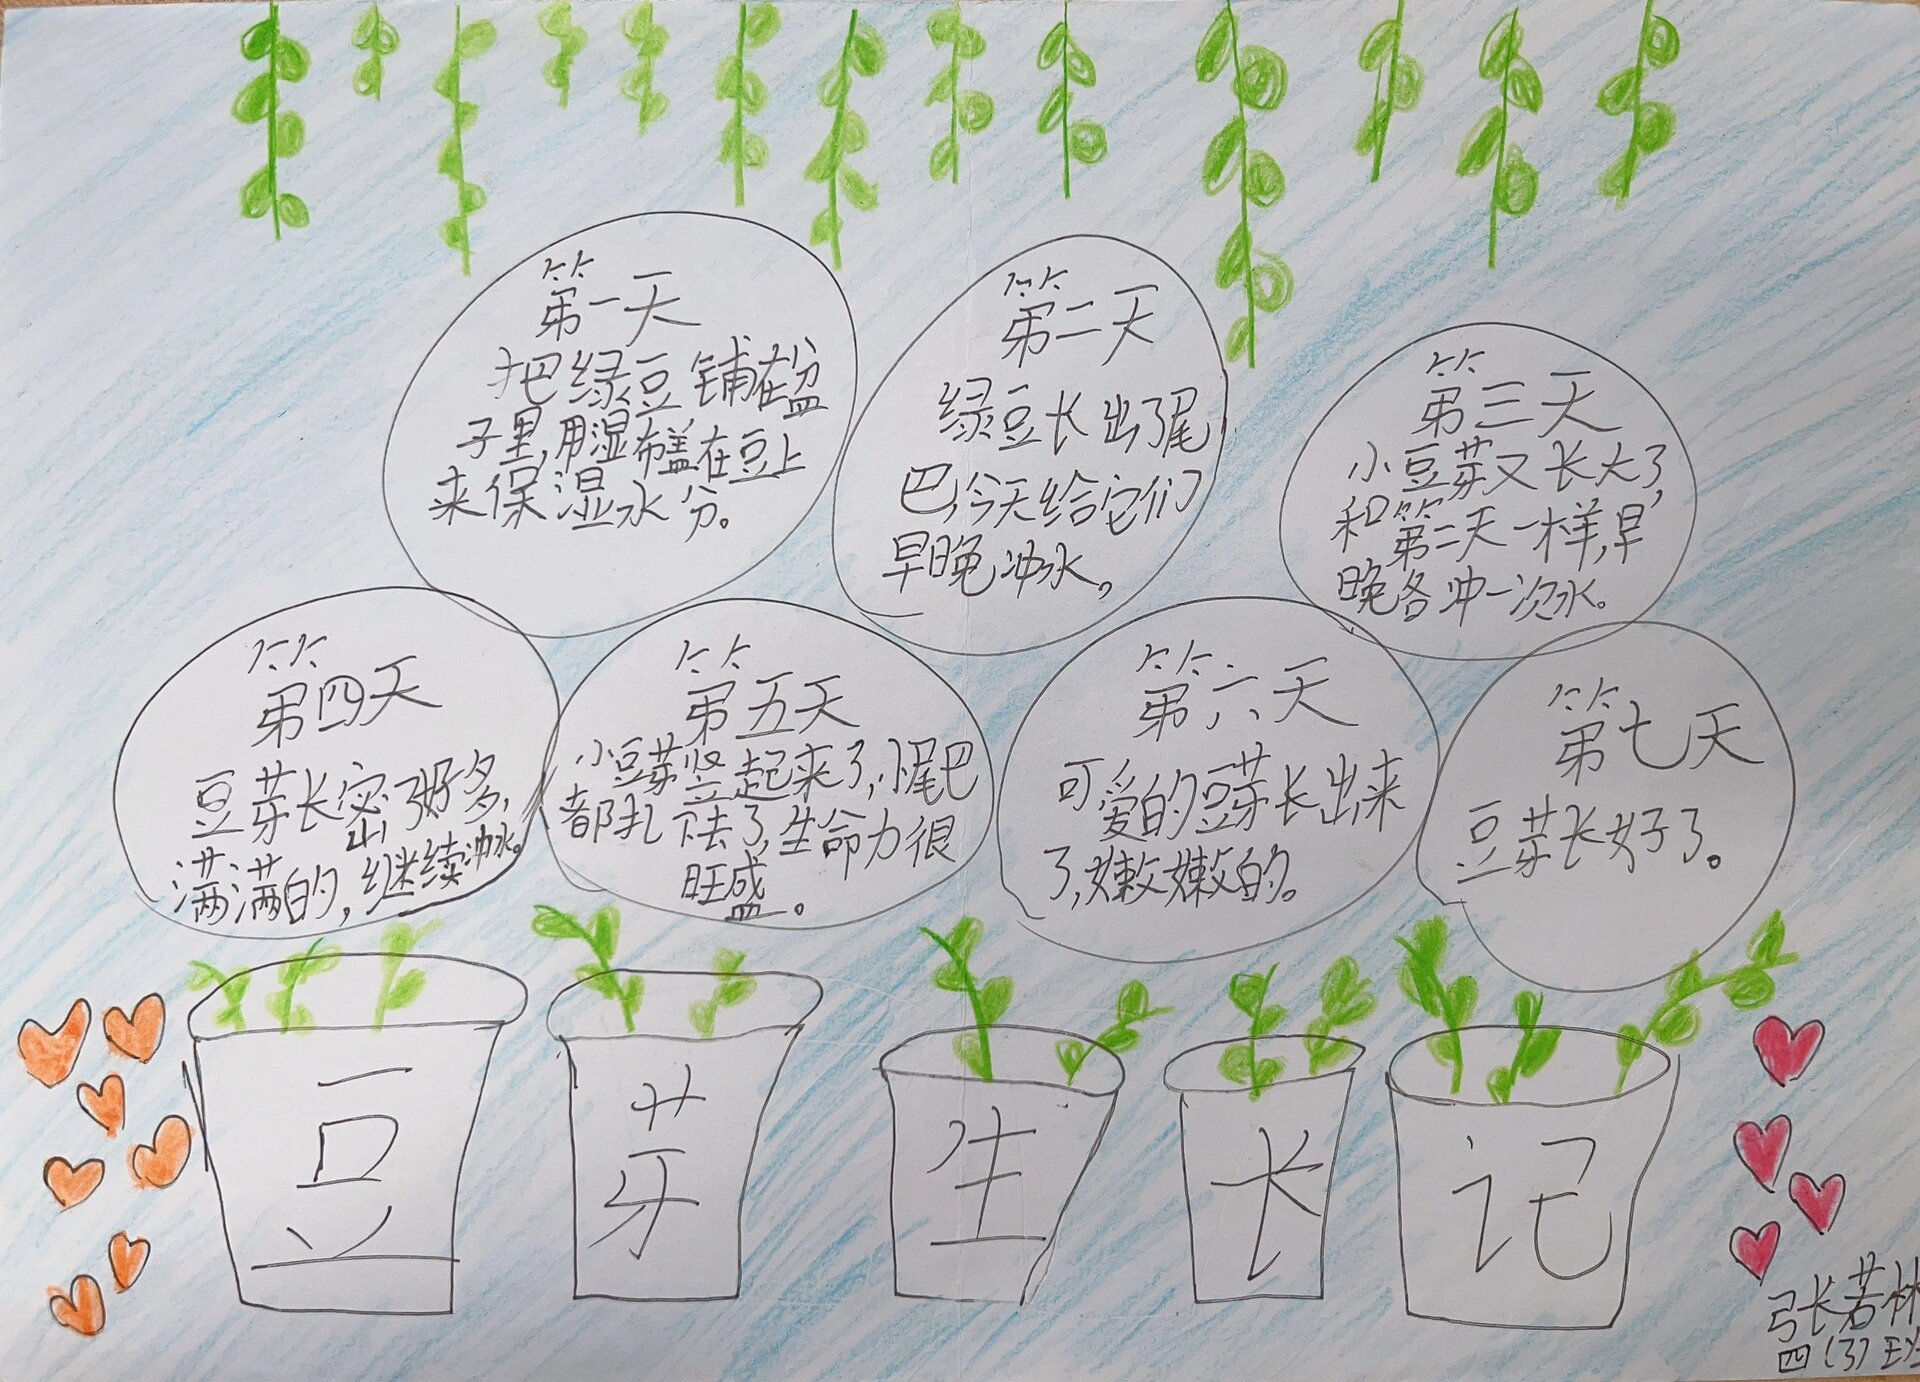 第一天
把绿豆铺在盆
子里,用湿布盖在豆上
来保湿水分。
第二天
绿豆长出了尾
巴,今天给它们
早晚冲水。
第三天
小豆芽又长大了,
和第二天一样,早
晚各冲一次水。
第四天
豆芽长密了好多,
满满的,继续冲水。
第五天
小豆芽竖起来了,小尾巴
都扎下去了,生命力很
旺盛。
第六天
可爱的豆芽长出来
了,嫩嫩的。
第七天
豆芽长好了。
豆芽生长记
张若林
四(3)班